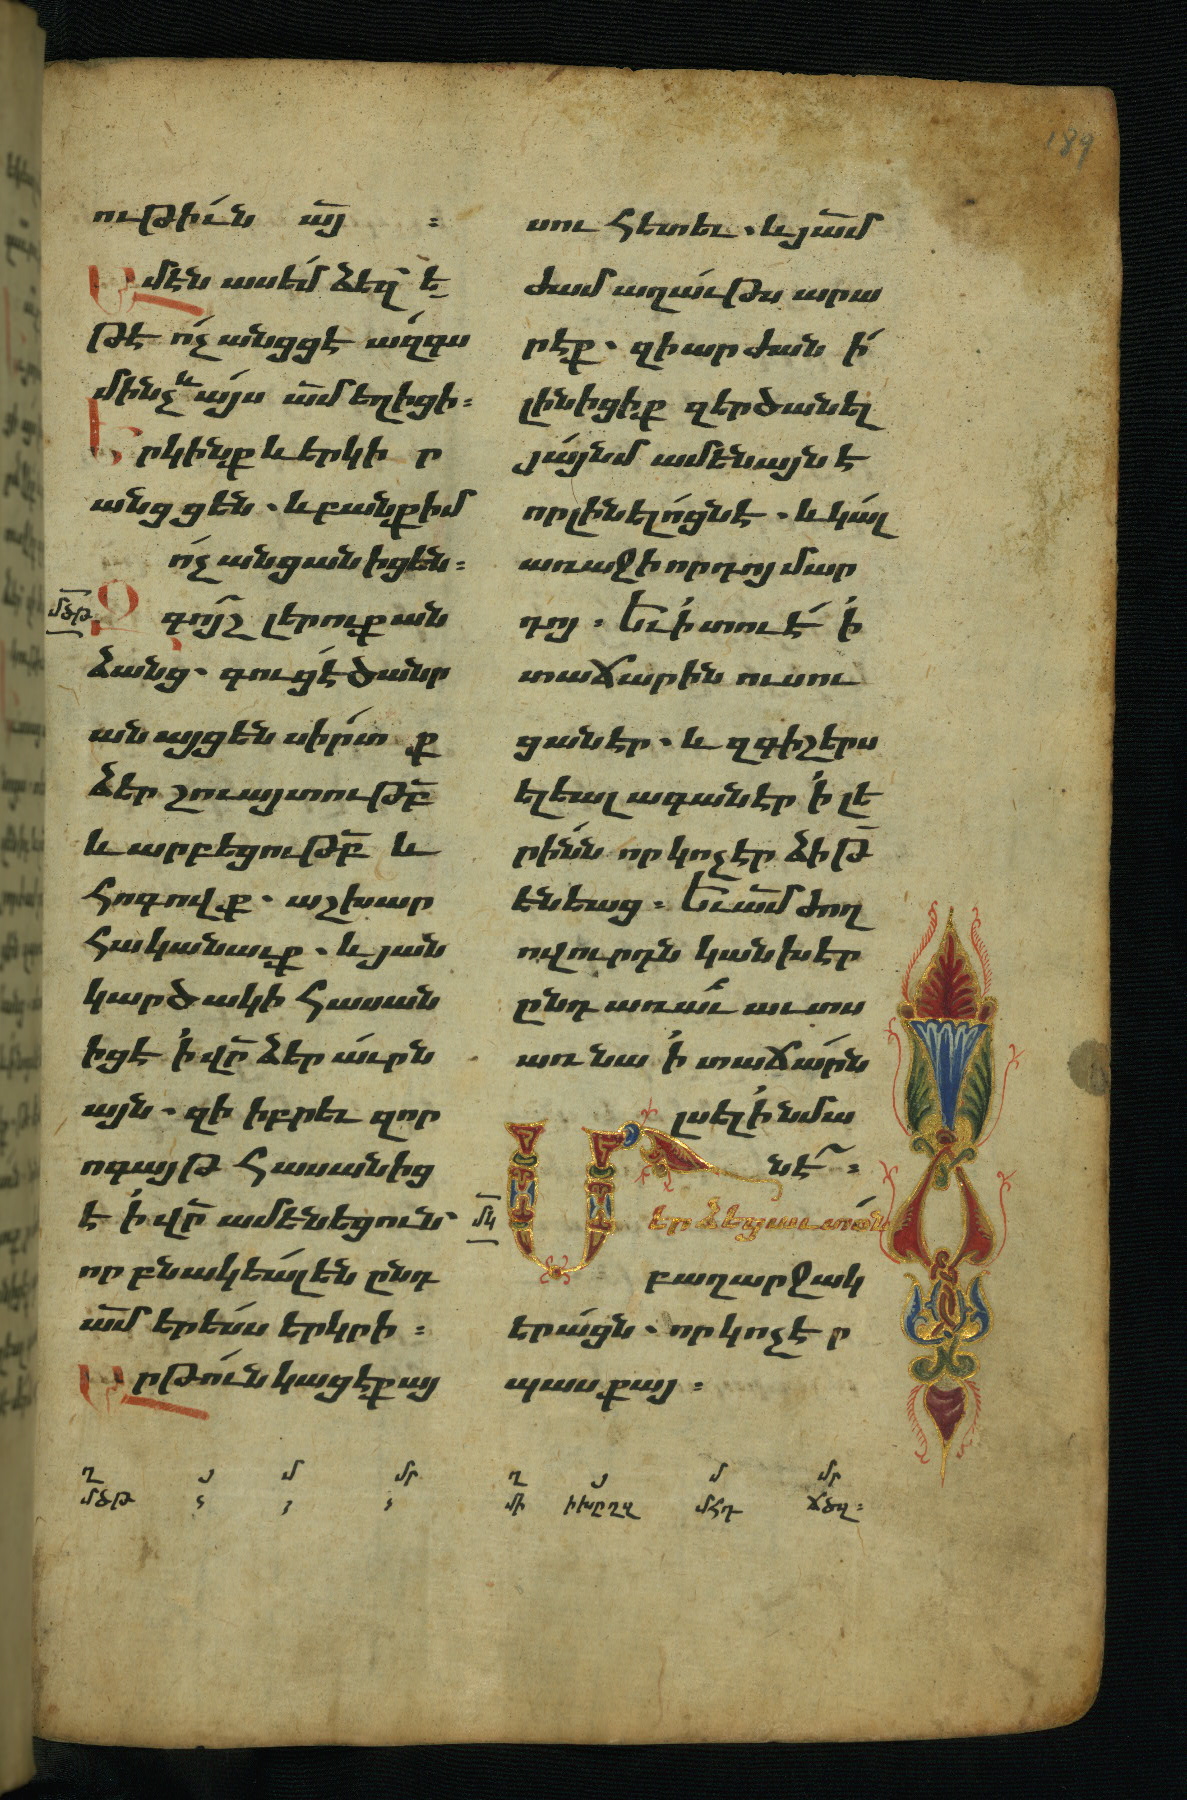 189
ութիւն ա՟յ ։
Ամէն ասեմ ձեզ՝ ե
թէ ոչ անցցէ ազգս
մինչև այս ա՟մ եղիցի։
Երկինք և երկիր
անցցեն. և բանք իմ
ոչ անցանիցեն։
մծթ Զգոյշ լերուք ան
ձանց. գուցէ ծանր
անայցեն սիրտք
ձեր շուայտութբ՟
և արբեցութբ՟ և
հոգովք. աշխար
հականաւք. և յան
կարծակի հասան
իցէ ի վր՟ ձեր աւրն
այն. զի իբրեւ զոր
ոգայթ հասանից
է ի վր՟ ամենեցուն՝
որ բնակեալ են ընդ
ա՟մ երեսս երկրի։
Արթուն կացէք այ
սու հետեւ. և յա՟մ
ժամ աղաւթս արա
րէք. զի արժանի
լինիցիք զերծանել
յայնմ ամենայնէ
որ լինելոցն է. և կալ
առաջի որդոյ մար
դոյ. Եւ ի տուէ ի
տաճարին ուսու
ցանէր. և զգիշերս
ելեալ ագանէր ի լե
րինն որ կոչէր ձիթ
ենեաց։ Եւ ա՟մ ժող
ովուրդն կանխէր
ընդ առաւ աւտս
առ նա ի տաճարն
լսել ի նմա
նէ՝։
մկ Մերձեցաւ տաւն
բաղարջակ
երացն. որ կոչէր
պասքայ։
ղ յ մ մր
մծթ
ղ յ մ մր
մի իխըղվ մհդ ճծզ։